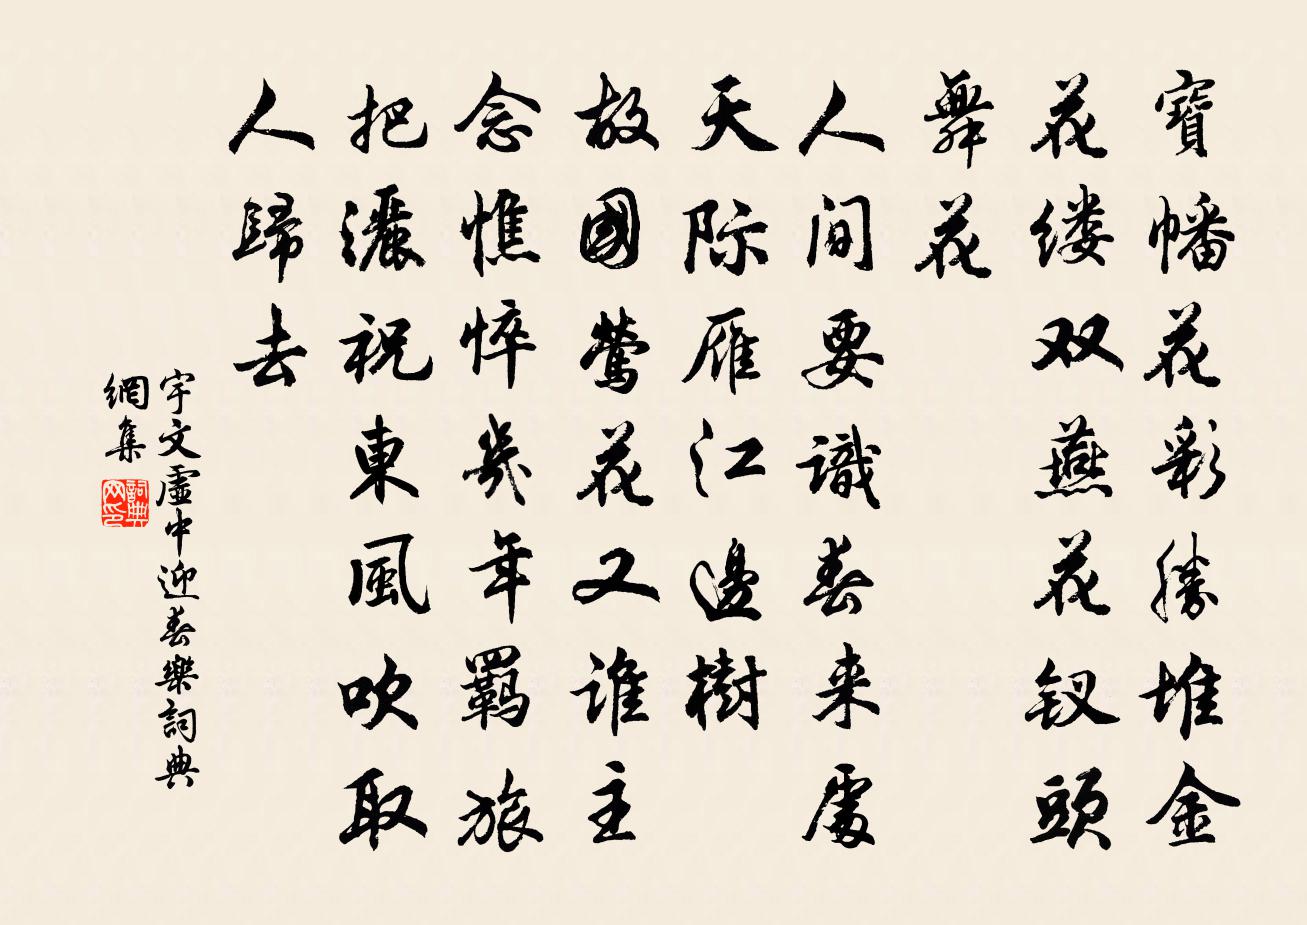 寶幡花彩勝堆金
花缕双燕花钗頭
舞花
人间要識春来處
天际雁江邊樹
故國鶯花又谁主
念憔悴幾年羈旅
把灑祝東風吹取
人歸去
宇文虛中迎春樂詞典
網集
詞典
网印